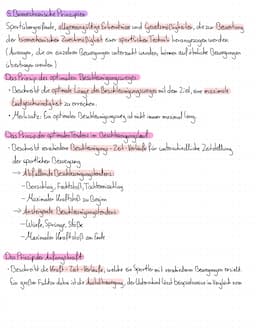 5. Biomechanische Prinzipien
Sportübergreifende, allgemeingültige Erkenntnisse und Gesetzmäßigkeiten, die zur Bewertung
der biomechanischen Zweckmäßigkeit einer sportlichen Technik herangezogen werden
(Aussagen, die an einzelnen Bewegungen untersucht wurden, können auf ähnliche Bewegungen
übertragen werden)
Das Prinzip des optimalen Beschleunigungsweges
- Beschreibt die optimale Länge des Beschleunigungsweges mit dem Ziel, eine maximale
Endgeschwindigkeit zu erreichen.
- Merksatz: Ein optimaler Beschleunigungsweg ist nicht immer maximal lang.
Das Prinzip der optimalen Tendenz im Beschleunigungsverlauf
- Beschreibt verschiedene Beschleunigungs-Zeit-Verläufe für unterschiedliche Zielstellung
der sportlichen Bewegung
→ Abfallende Beschleunigungstendenz:
- Boxschlag, Fechtstoß, Tischtennisschlag
- Maximaler Kraftstoß zu Beginn
→ Ansteigende Beschleunigungstendenz:
- Würfe, Sprünge, Stöße
- Maximaler Kraftstoß am Ende
Das Prinzip der Anfangskraft
- Beschreibt die Kraft-Zeit-Verläufe, welche ein Sportler mit verschiedenen Bewegungen erzielt.
Ein großer Faktor dabei ist die Ausholbewegung, der Unterschied lässt beispielsweise im Vergleich vom